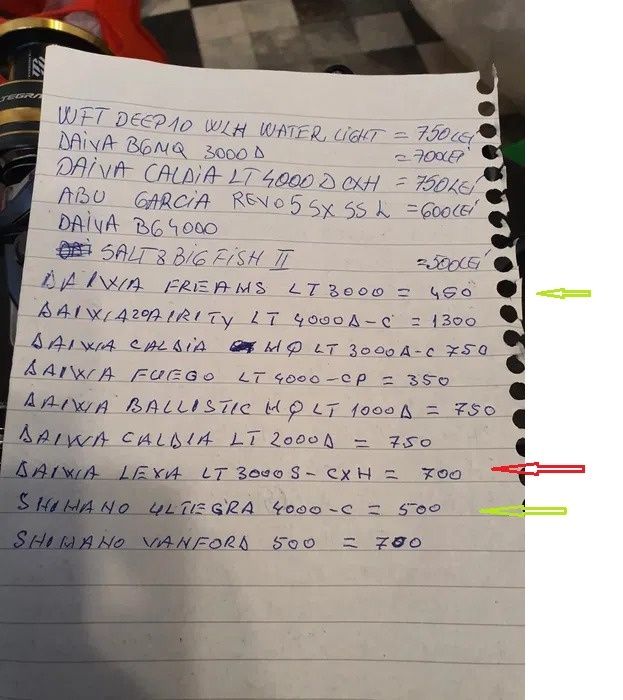 TEGRA
WFT DEEP10 WLH WATER LIGHT = 750LEI
DAIVA BGMQ 3000D =700LEI
DAIVA CALDIA LT 4000 D CXH = 750LEI
ABU GARCIA REVO 5 SX SS L =600LEI
DAIVA BG4000
SALT 8 BIG FISH II =500LEI
DAIWA FREAMS LT 3000 = 450
DAIWA20AIRITY LT 4000D-C = 1300
DAIWA CALDIA MQ LT 3000D-C 750
DAIWA FUEGO LT 4000-CP = 350
DAIWA BALLISTIC MQ LT 1000D = 750
DAIWA CALDIA LT 2000D = 750
DAIWA LEXA LT 3000S-CXH = 700
SHIMANO ULTEGRA 4000-C = 500
SHIMANO VANFORD 500 = 700